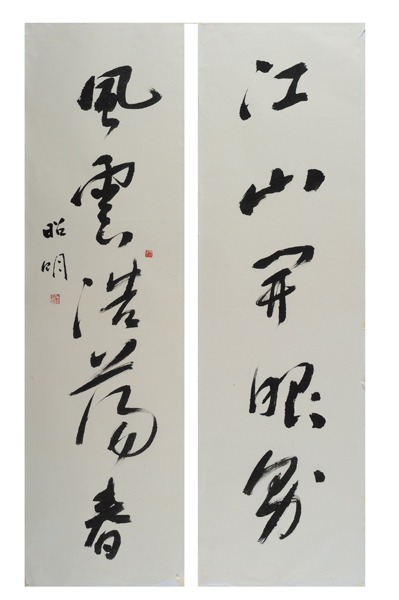 江山開眼界
風雲浩蕩春
昭明